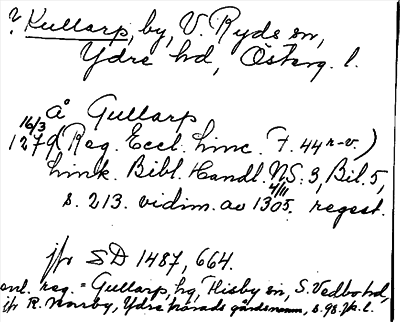 ? Kullarp, by, V. Ryds sn,
Ydre hd, Österg. l.
å Gullarp
16/3
1279 (Reg. Eccl. Linc. f. 44 r-v.)
Link. Bibl. Handl. N.S. 3, Bil. 5,
s. 213. vidim. av 4/11 1305. regest.
jfr SD 1487, 664.
enl. reg. = Gullarp, hg, Flisby sn, S. Vedbo hd,
jfr R. Norby, Ydre härads gårdsnamn, s. 98. Jk. l.